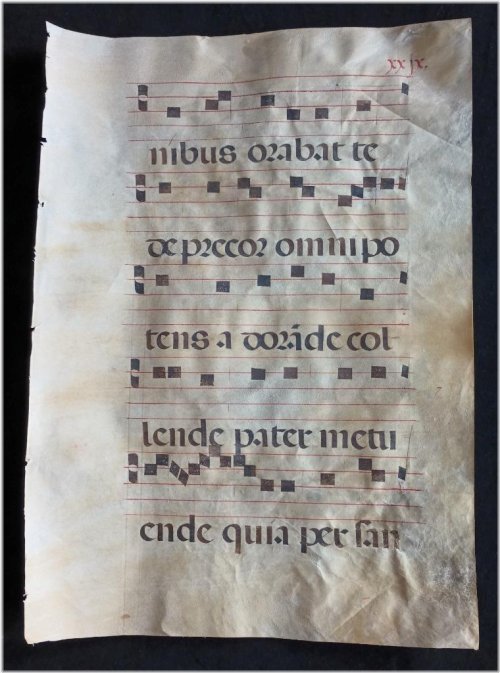 xxjx.
nibus orabat te
de precor omnipo
tens a dorāde col
lende pater metu
ende quia per san